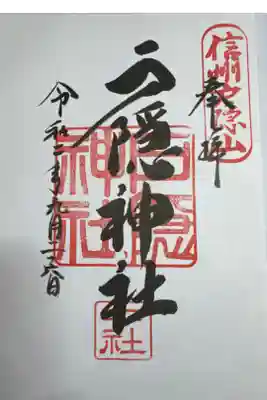 信州戸隠山
奉拝
戸隠神社
戸隠神社
社
令和二年九月二十六日